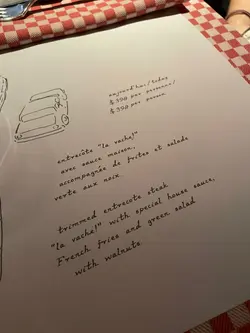 aujourd'hui/today
$390 par personne/
$390 per person
entrecôte "la vache!"
avec sauce maison,
accompagnée de frites et salade
verte aux noix.
trimmed entrecote steak
"la vache!" with special house sauce,
French fries and green salad
with walnuts